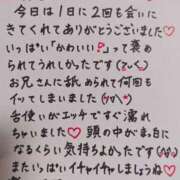 今日は1日に2回も会いに
きてくれてありがとうございました♡
いっぱい「かわいい❢」って褒め
られてうれしかったです(てぃく)
お兄さんに舐められて何回も
イッてしまいました
舌使いがエッチですぐ濡れ
ちゃいました♡ 頭の中がまっ白に
なるくらい気持ちよかったです
またいっぱいイチャイチャしましょうね